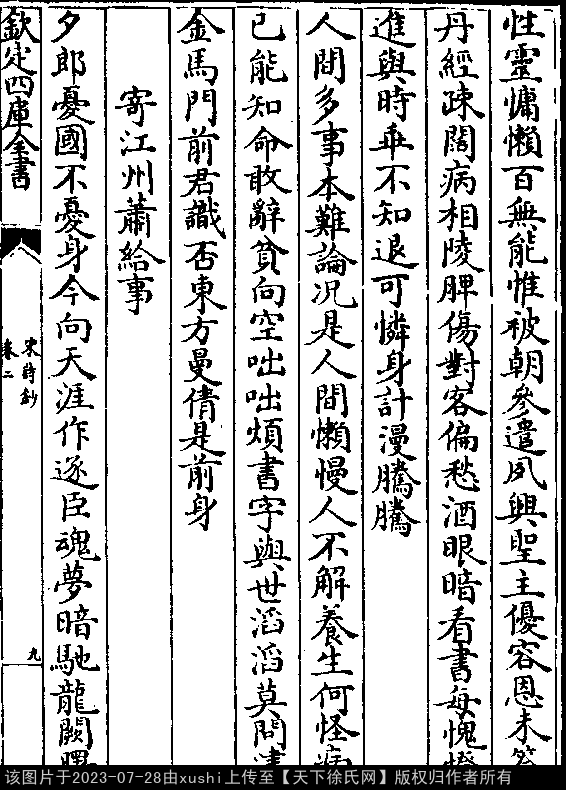 性靈慵懶百無能惟被朝參遣夙興聖主優容恩未
丹經疎闊病相陵脾傷對客偏愁酒眼暗看書每愧
進與時乖不知退可憐身計漫騰騰
人間多事本難論况是人間懶慢人不解養生何怪病
已能知命敢辭貧向空咄咄煩書字與世滔滔莫問津
金馬門前君識否東方曼倩是前身
寄江州蕭給事
夕郎憂國不憂身今向天涯作逐臣魂夢暗馳龍闕曙
欽定四庫全書
宋詩鈔
卷二
九
该图片于2023-07-28由xushi上传至【天下徐氏网】版权归作者所有